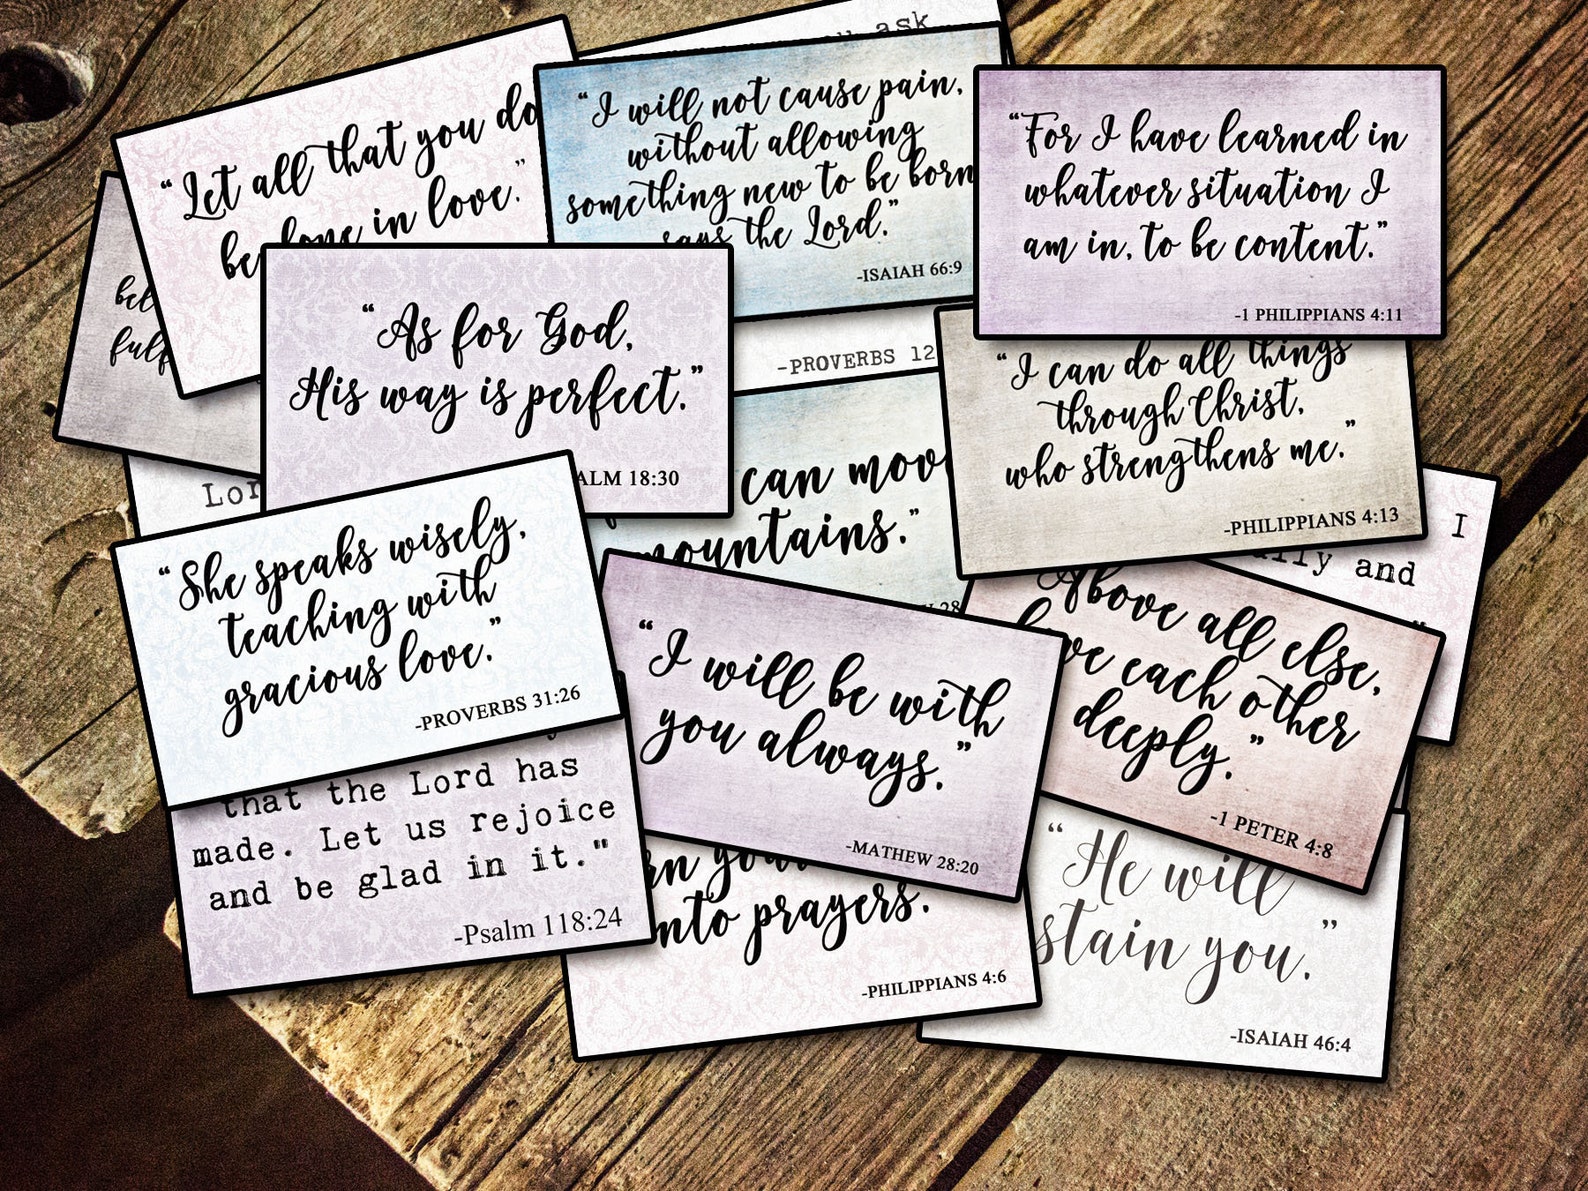 ask
"Let all that you do
be done in love."
"I will not cause pain,
without allowing
something new to be born
says the Lord."
-ISAIAH 66:9
"For I have learned in
whatever situation I
am in, to be content."
-1 PHILIPPIANS 4:11
"As for God,
His way is perfect."
18:30
-PROVERBS 12
"I can do all things
through Christ,
who strengthens me."
-PHILIPPIANS 4:13
can
mountains."
I
and
"She speaks wisely,
teaching with
gracious love."
-PROVERBS 31:26
"I will be with
you always."
-MATHEW 28:20
Above all else,
love each other
deeply."
-1 PETER 4:8
that the Lord has
made. Let us rejoice
and be glad in it."
-Psalm 118:24
into prayers.
-PHILIPPIANS 4:6
"He will
you."
-ISAIAH 46:4